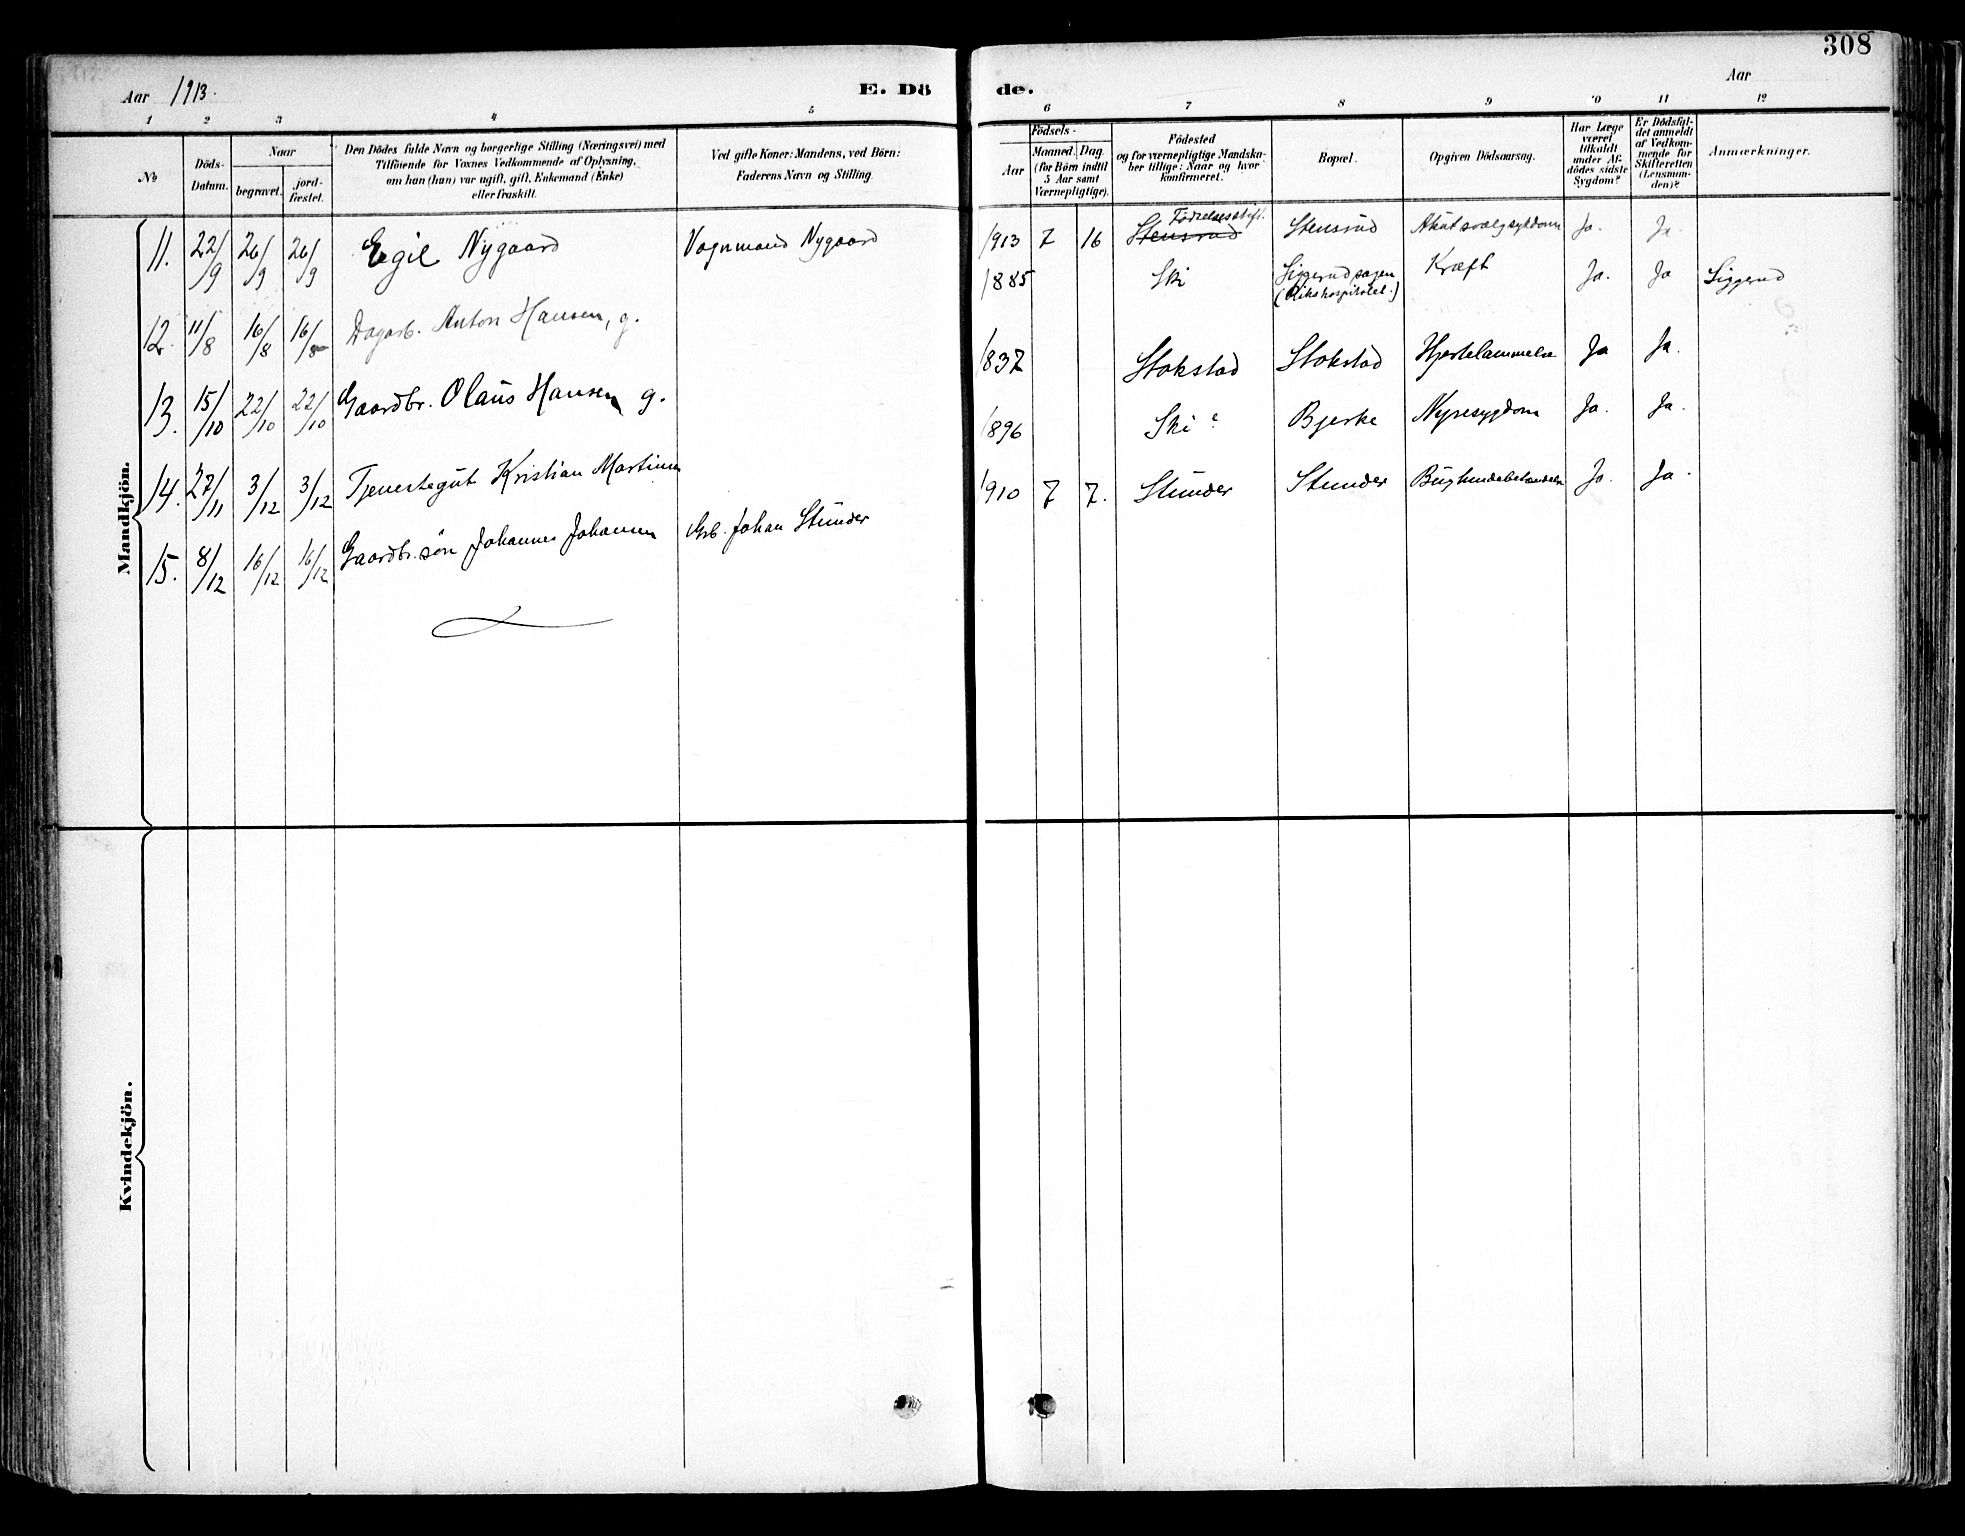 308
Aar 1913.
E. Dö de.
Aar
1 2 3 4 5 6 7 8 9 10 11 12
No
Döds-Datum.
Naar
begravet.
jord-fæstet.
Den Dödes fulde Navn og borgerlige Stilling (Næringsvei) med
Tilföiende for Voxnes Vedkommende af Oplysning,
om han (hun) var ugift, gift, Enkemand (Enke)
eller fraskilt.
Ved gifte Koner: Mandens, ved Börn:
Faderens Navn og Stilling.
Födsels-
Aar
Maaned. Dag
(for Börn indtil
5 Aar samt
Værnepligtige).
Födested
og for værnepligtige Mandska-
ber tillige: Naar og hvor
konfirmeret.
Bopæl.
Opgiven Dödsaarsag.
Har Læge
været
tilkaldt
under Af-
dödes sidste
Sygdom?
Er Dödsfal-
det anmeldt
af Vedkom-
mende for
Skifteretten
(Lensman-
den)?
Anmærkninger.
Mandkjön.
11. 22/9 26/9 26/9 Egil Nygaard Vognmand Nygaard 1913 7 16 Stensrud Fødselsstift. Stensrud Akut svælgsykdom Ja. Ja.
12. 11/8 16/8 16/8 Dagarb. Anton Hansen, g. 1885 Ski Siggerudsagen (Rikshospitalet.) Kræft Ja. Ja Siggerud
13. 15/10 22/10 22/10 Gaardbr. Olaus Hansen, g. 1837 Stokstad Stokstad Hjertelammelse Ja Ja.
14. 27/11 3/12 3/12 Tjenestegut Kristian Martinsen 1896 Ski? Bjerke Nyresygdom Ja. Ja.
15. 8/12 16/12 16/12 Gaardbr. søn Johannes Johansen Grb. Johan Stunder 1910 7 7. Stunder Stunder Bughindebetændelse Ja. Ja.
Kvindekjön.